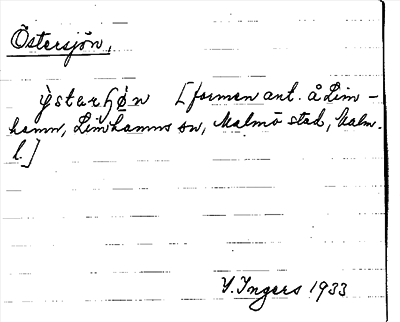 Östersjön,
ỳstarɧø̀n [formen ant. å Lim-
hamn, Limhamns sn, Malmö stad, Malm.
l.]
Y. Ingers 1933